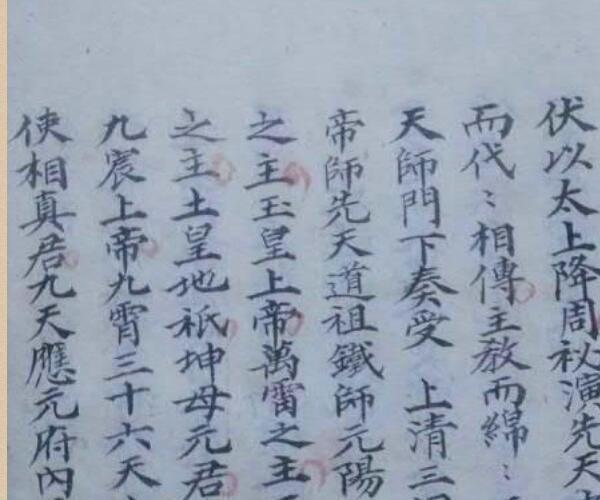 伏以太上降周祕演先天
而代〻相傳主教而綿〻
天師門下奏受 上清三
帝師先天道祖鐵師元陽
之主玉皇上帝萬雷之主
之主土皇地祇坤母元君
九宸上帝九霄三十六天
使相真君九天應元府內